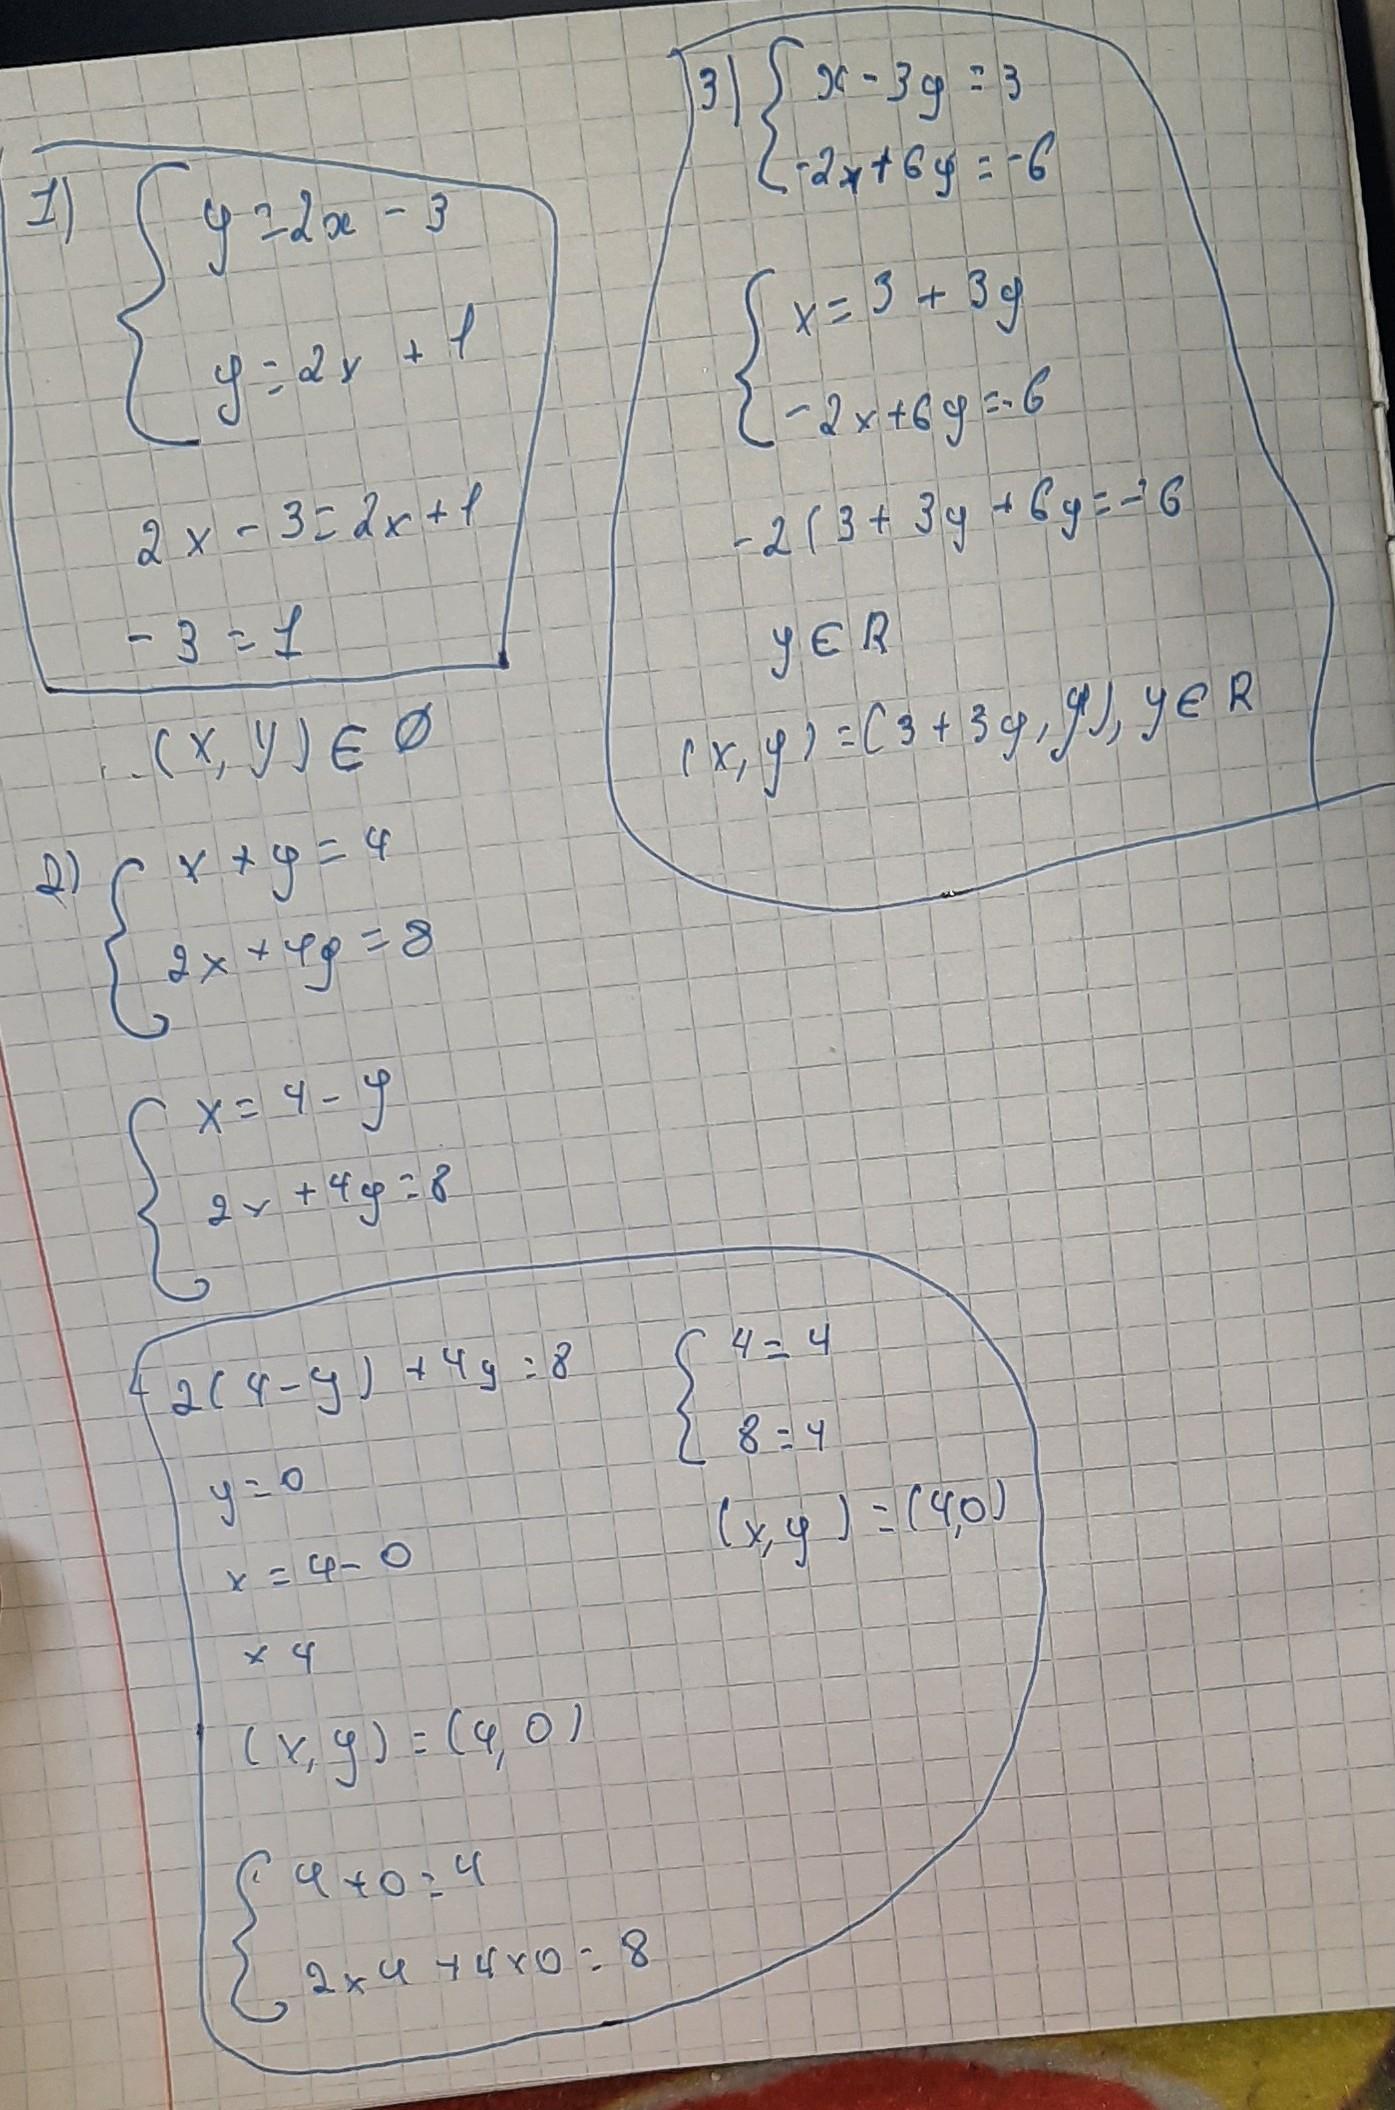 1) { y=2x-3
y=2x+1
2x-3=2x+1
-3=1
(x,y)∈Ø
2) { x+y=4
2x+4y=8
{ x=4-y
2x+4y=8
2(4-y)+4y=8
y=0
x=4-0
x 4
(x,y)=(4,0)
{ 4+0=4
2×4+4×0=8
{ 4=4
8=4
(x,y)=(4,0)
3) { x-3y=3
-2x+6y=-6
{ x=3+3y
-2x+6y=-6
-2(3+3y+6y=-6
y∈R
(x,y)=(3+3y,y), y∈R